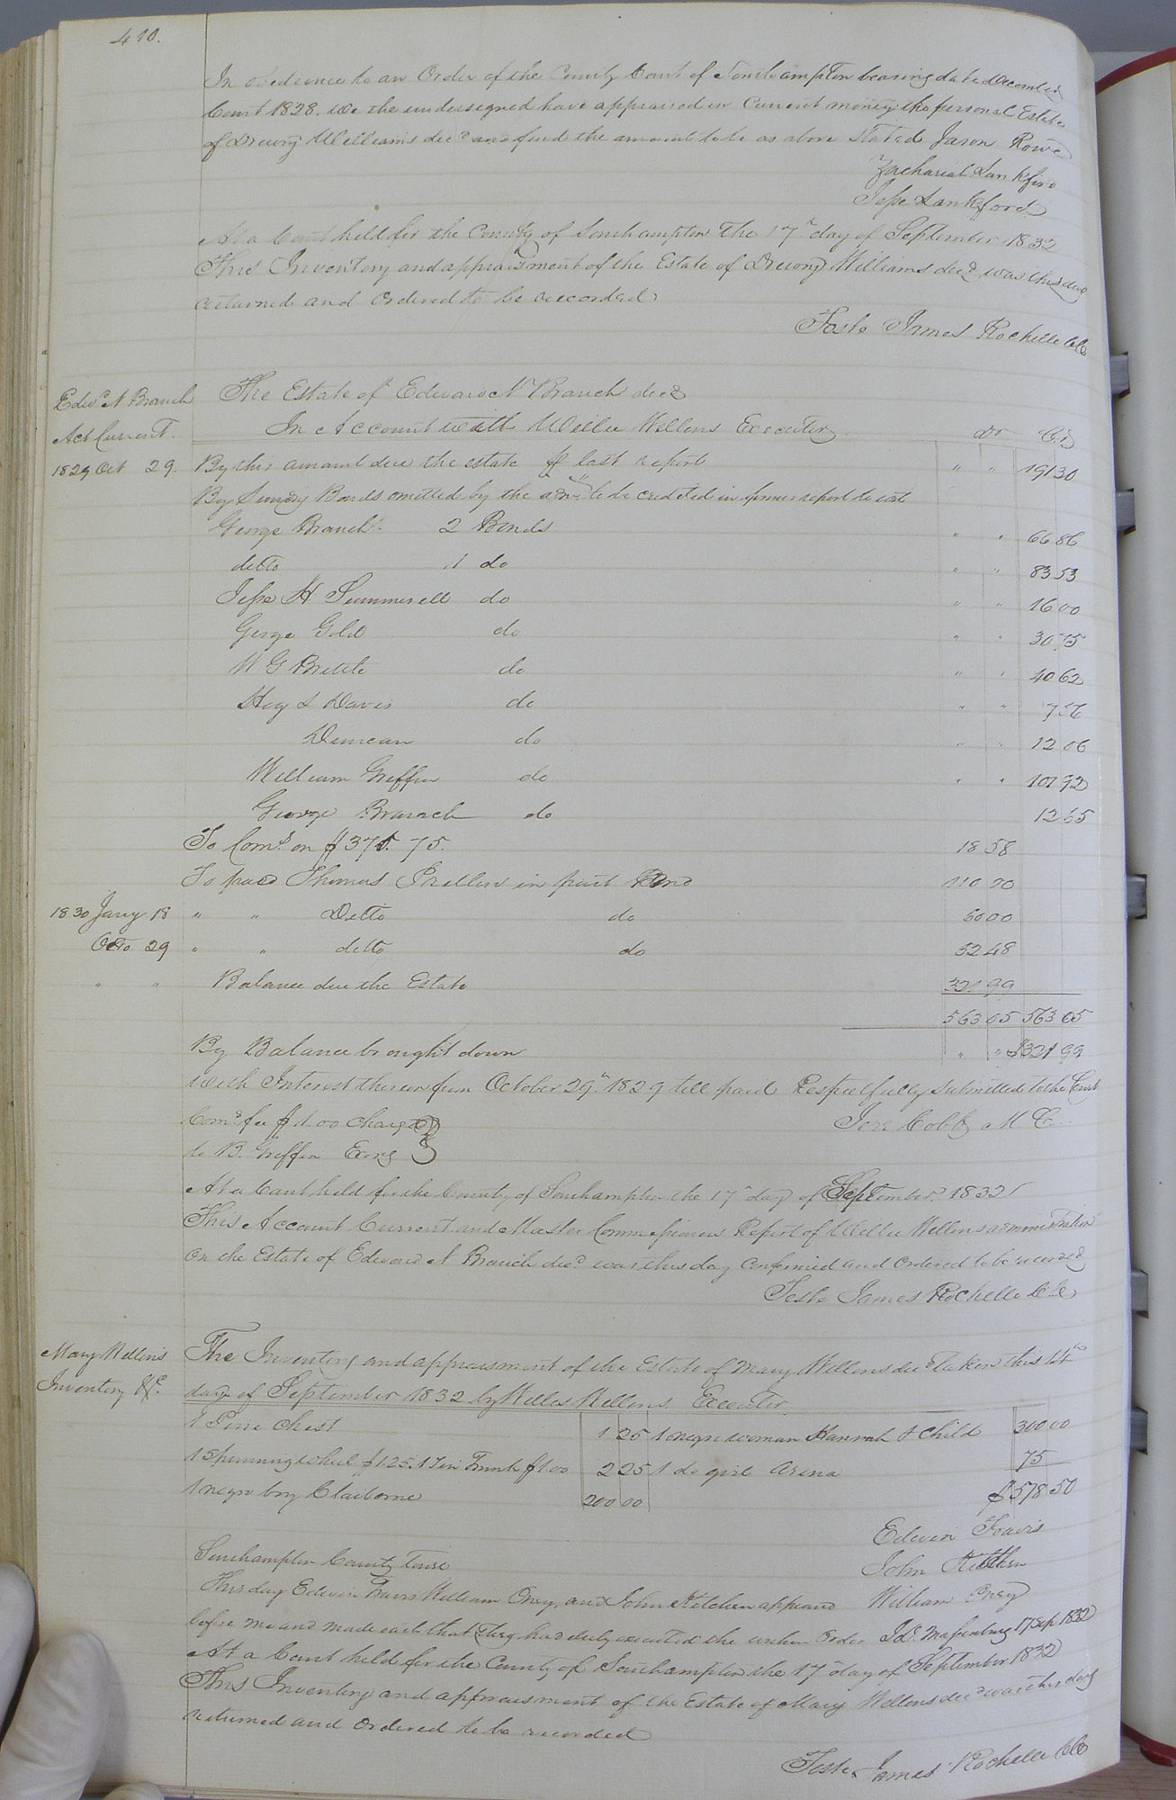 410.
In obedience to an Order of the County Court of Southampton bearing date December
Court 1828. We the undersigned have appraised in Current money the personal Estate
of Drewry Williams decd and find the amount to be as above Stated Jason Rowe
Zachariah Lankford
Jesse Lankford
At a Court held for the County of Southampton the 17th day of September 1832
This Inventory and appraisment of the Estate of Drewry Williams decd was this day
returned and Ordered to be recorded
Teste James Rochelle CC
Edwd N Branch
Act Current.
The Estate of Edward N Branch decd
In Account with Willie Wellons Executor Dr Cr
1829 Oct 29. By this amount due the estate pr last report " " 191 30
By Sundry Bonds omitted by the to be credited in former report to wit
George Branch 2 Bonds " " 66 86
ditto 1 do " " 83 53
Jesse H Summerell do " " 16 00
George Gold do " " 30 75
W G Brittle do " " 40 62
Hay & Davis do " " 7 56
Duncan do " " 12 06
William Griffin do " " 101 92
George Branch do 12 65
To Coms on $371. 75. 18 58
To paid Thomas in part Bond 110 00
1830 Jany 18 " " Ditto do 60 00
Octo 29 " " ditto do 52 48
" " Balance due the Estate 321 99
563 05 563 05
By Balance brought down " " $321 99
With Interest thereon from October 29th 1829 till paid Respectfully Submitted to the Court
Coms fee $1.00 charged
to B. Griffin Exors
Jere Cobb M C
At a Court held for the County of Southampton the 17th day of September 1832
This Account Current and Master Commissioners Report of Willie Wellons administration
on the Estate of Edward N Branch decd was this day Confirmed and Ordered to be recorded
Teste James Rochelle CC
Mary Wellons
Inventory &c.
The Inventory and appraisment of the Estate of Mary Wellons decd Taken this 14th
day of September 1832 by Willes Wellons Executor.
1 Pine Chest 1 25 1 negro woman Hannah & Child 300 00
1 Spinning wheel $1.25. 1 Tin Trunk $1.00 2 25 1 do girl Arena 75
1 negro boy Claiborne 200 00 $578 50
Edwin Travis
John Kitchen
William Oney
Southampton County Towit
This day Edwin Travis William Oney, and John Kitchen appeard
before me and made oath that they had duly executed the within Order Jd. Massenburg 17 Sep 1832
At a Court held for the County of Southampton the 17th day of September 1832
This Inventory and appraisment of the Estate of Mary Wellons decd was this day
returned and Ordered to be recorded
Teste James Rochelle CC